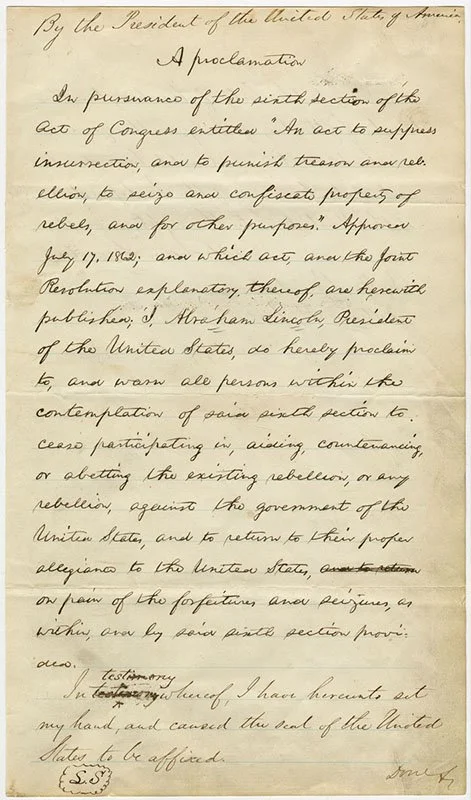 By the President of the United States of America
A proclamation
In pursuance of the sixth section of the
Act of Congress entitled "An act to suppress
insurrection, and to punish treason and reb-
ellion, to seize and confiscate property of
rebels, and for other purposes." Approved
July 17, 1862; and which act, and the Joint
Resolution explanatory thereof, are herewith
published, I, Abraham Lincoln, President
of the United States, do hereby proclaim
to, and warn all persons within the
contemplation of said sixth section to
cease participating in, aiding, countenancing,
or abetting the existing rebellion, or any
rebellion, against the government of the
United States, and to return to their proper
allegiance to the United States, and to return
on pain of the forfeitures and seizures, as
within, and by said sixth section provi-
ded.
testimony
In testimony whereof, I have hereunto set
my hand, and caused the seal of the United
States to be affixed.
L.S
Done